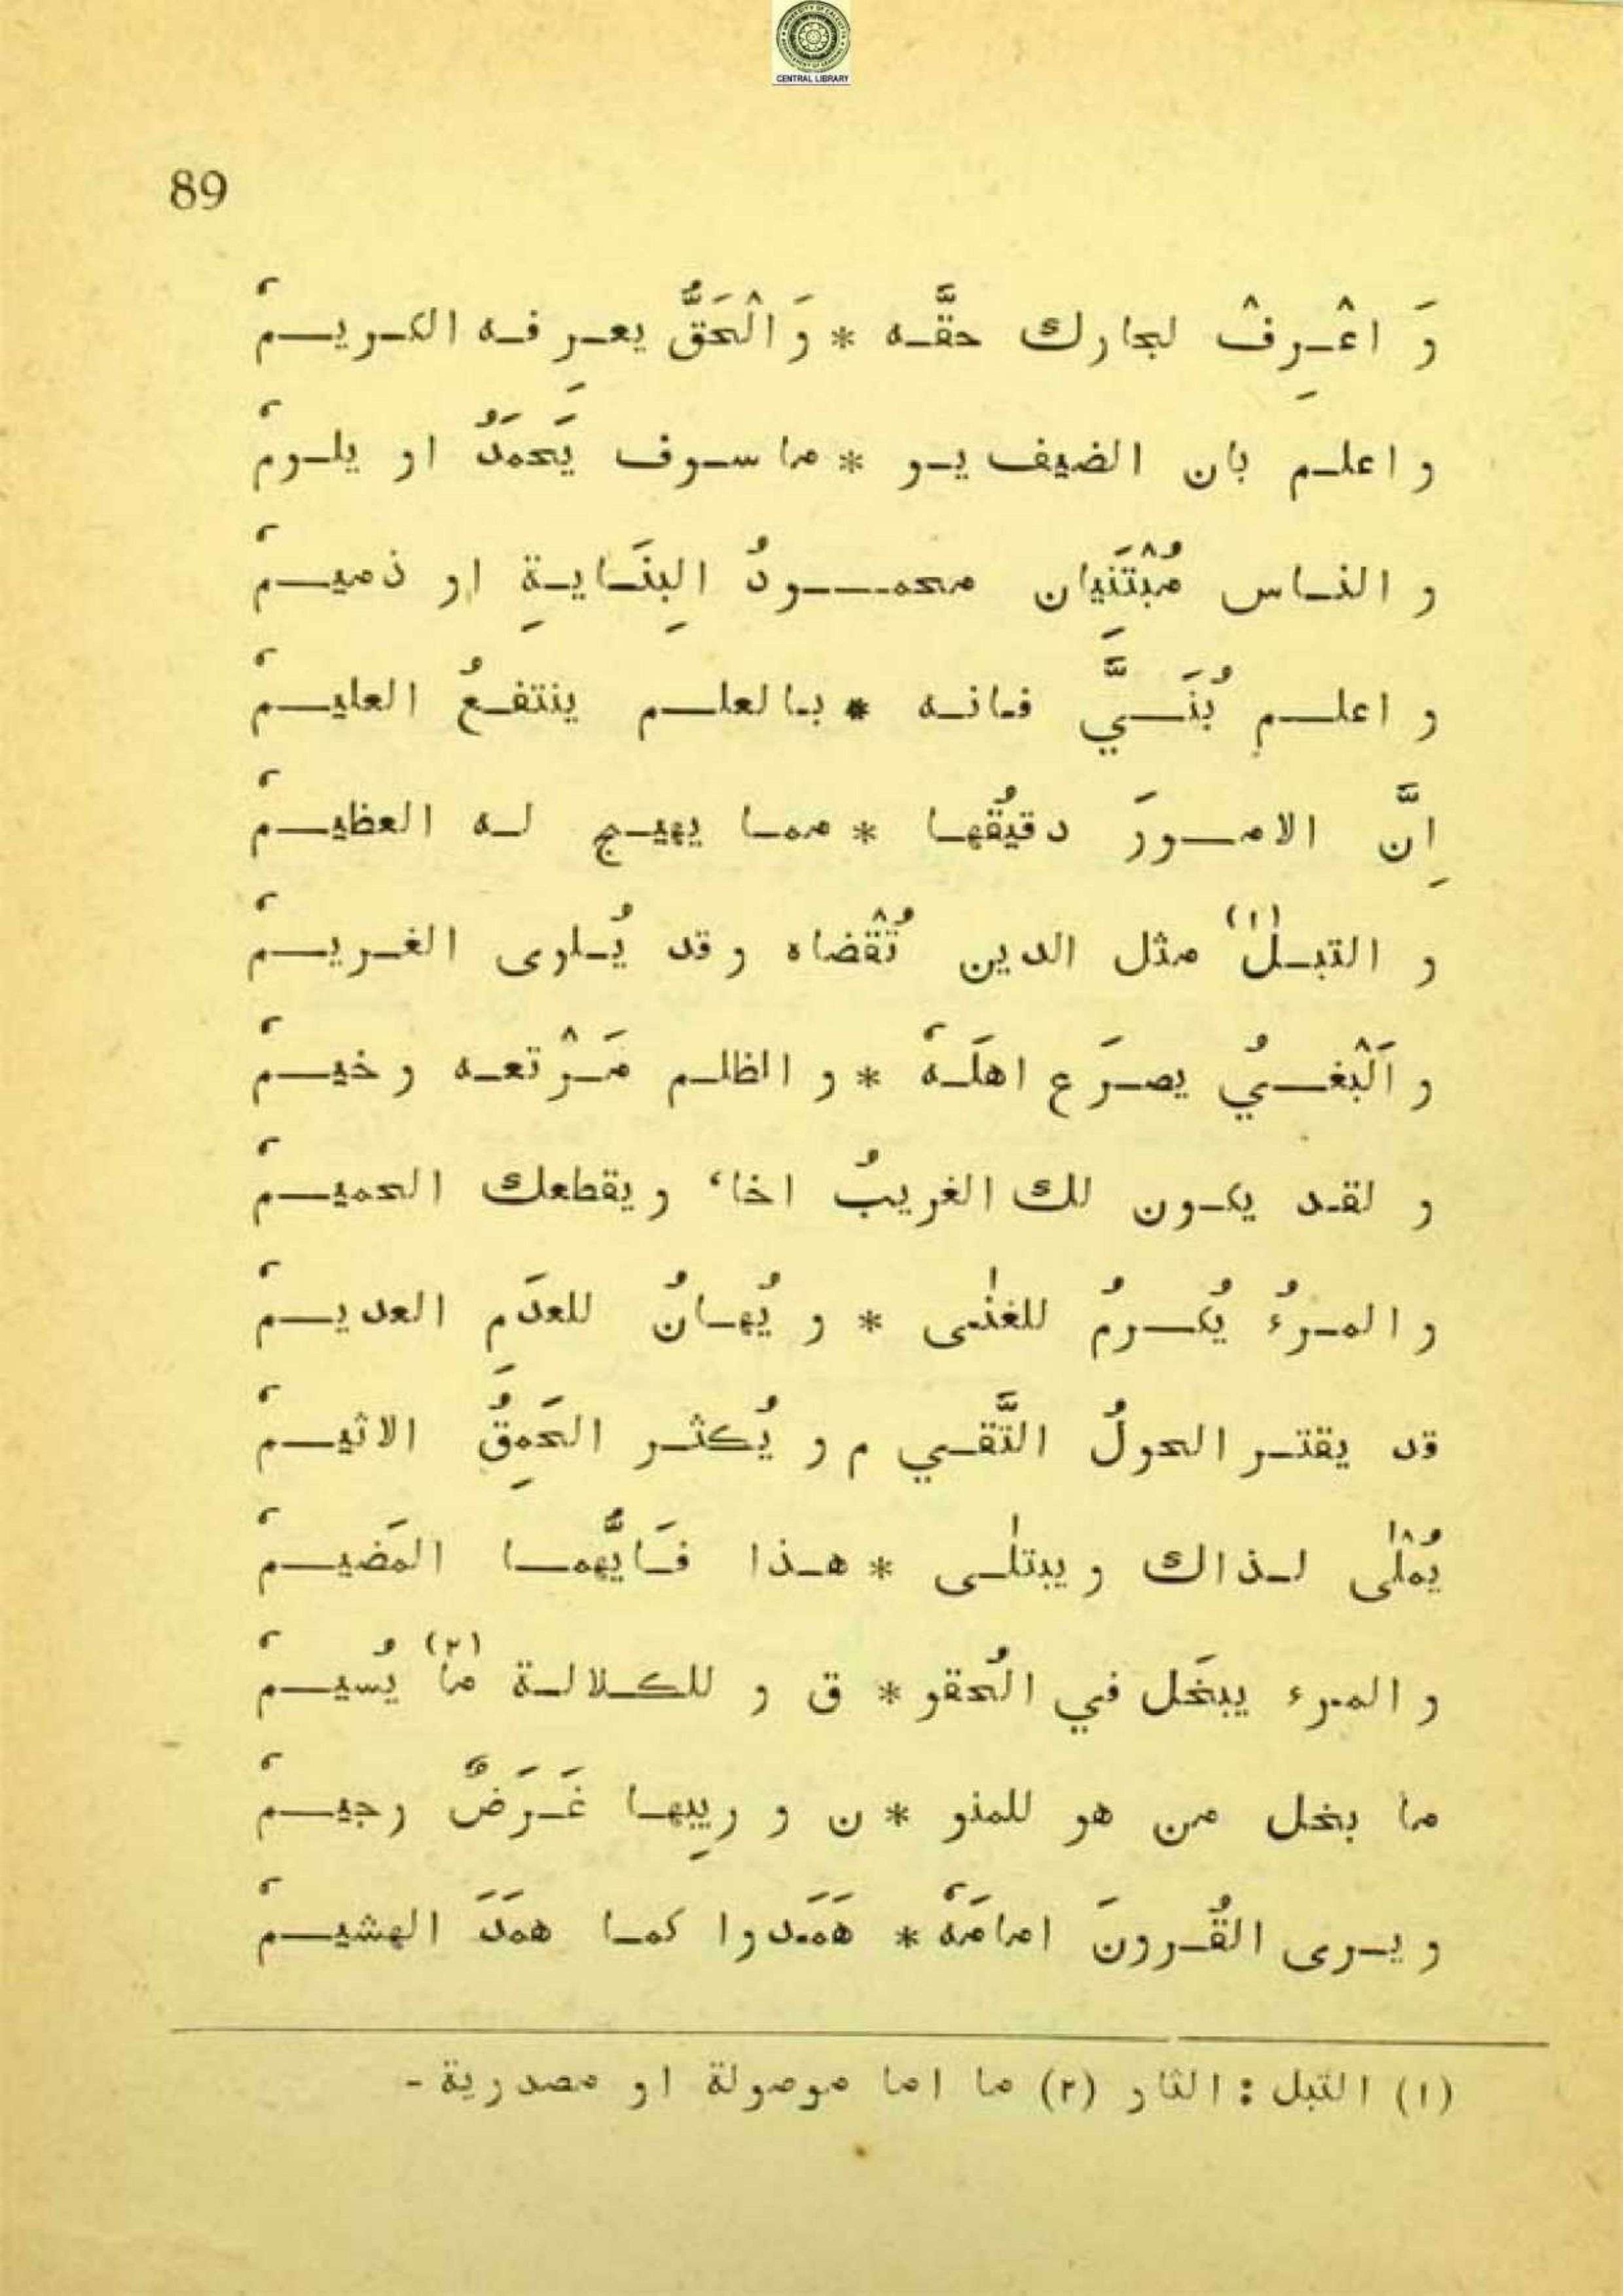 CENTRAL LIBRARY
89
وَ اعْـرِفْ لجارك حقَّـه * وَ الْحَقُّ يعـرِفـه الكـريـمُ
و اعلـم بان الضيف يـو * ما سـوف يَحمَدُ او يلـومُ
و النـاس مُبْتَنِيان محمـــودُ البِنَـايـةِ او ذميـمُ
و اعلـم بُنَـيَّ فـانـه * بـالعلـم ينتفـعُ العليـمُ
اِنَّ الامـورَ دقيقُها * ممـا يهيـج لـه العظيـمُ
و التبـل(١) مثل الدين تُقْضاه و قد يُـلوى الغـريـمُ
و اَلْبغـيُ يصـرَع اهلَـهُ * و الظلـم مَـرْتعـه و خيـمُ
و لقـد يكـون لك الغريبُ اخا، و يقطعك الحميـمُ
و المـرءُ يُكـرمُ للغنٰـى * و يُهـانُ للعدَمِ العديـمُ
قد يقتـر الحولُ التَّقـي م و يُكثـر الحَمِقُ الاثيـمُ
يُمْلٰى لـذاك و يبتلٰـى * هـذا فـَايُّهمـا المَضيـمُ
و المـرء يبخَل في الحُقو * ق و للكـلالـة ما(٢) يُسيـمُ
ما بخل من هو للمنو * ن و ريبِهـا غَـرَضٌ رجيـمُ
و يـرى القُـرونَ امامَهُ * هَمَـدوا كمـا همَدَ الهشيـمُ
(١) التبل : الثار (٢) ما اما موصولة او مصدرية -